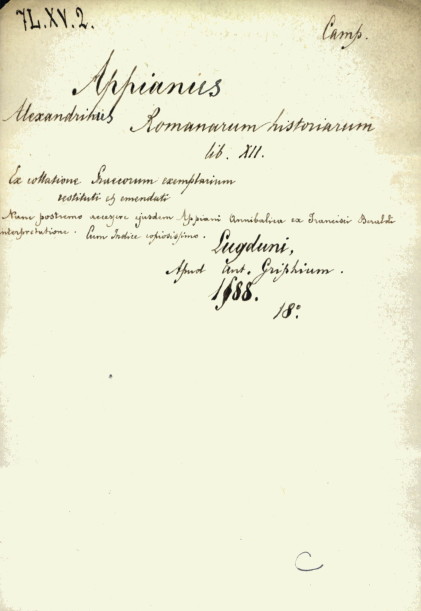 7L.XV.2.
Camp.
Appianus
Alexandrinus Romanarum historiarum
lib. XII.
Ex collatione Graecorum exemplarium
restituti & emendati
Nunc postremo accessere ejusdem Appiani Annibalica ex Francisci Beraldi
interpretatione. Cum Indice copiosissimo.
Lugduni,
Apud Ant. Griphium.
1588.
18°
C